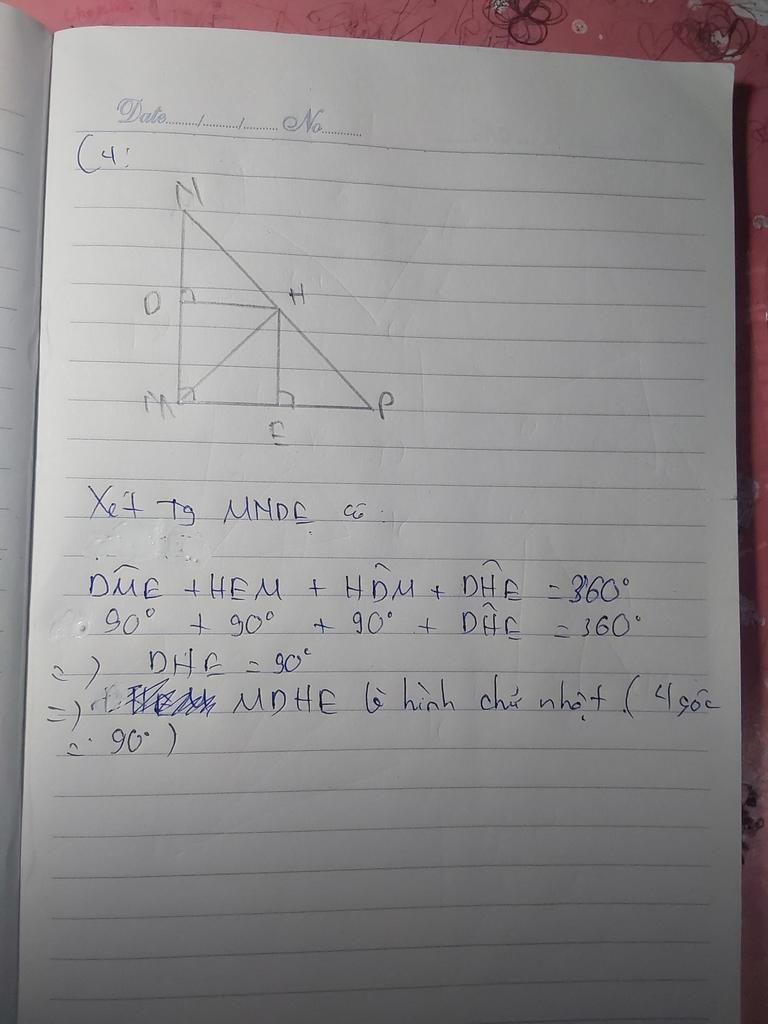 Date......../........../.......... No............
C4:
N
D H
M E P
Xét Tg MNDE có:
DM̂E + HEM + HD̂M + DĤE = 360°
90° + 90° + 90° + DĤE = 360°
=) DHE = 90°
=) MDHE là hình chữ nhật (4 góc
= 90°)